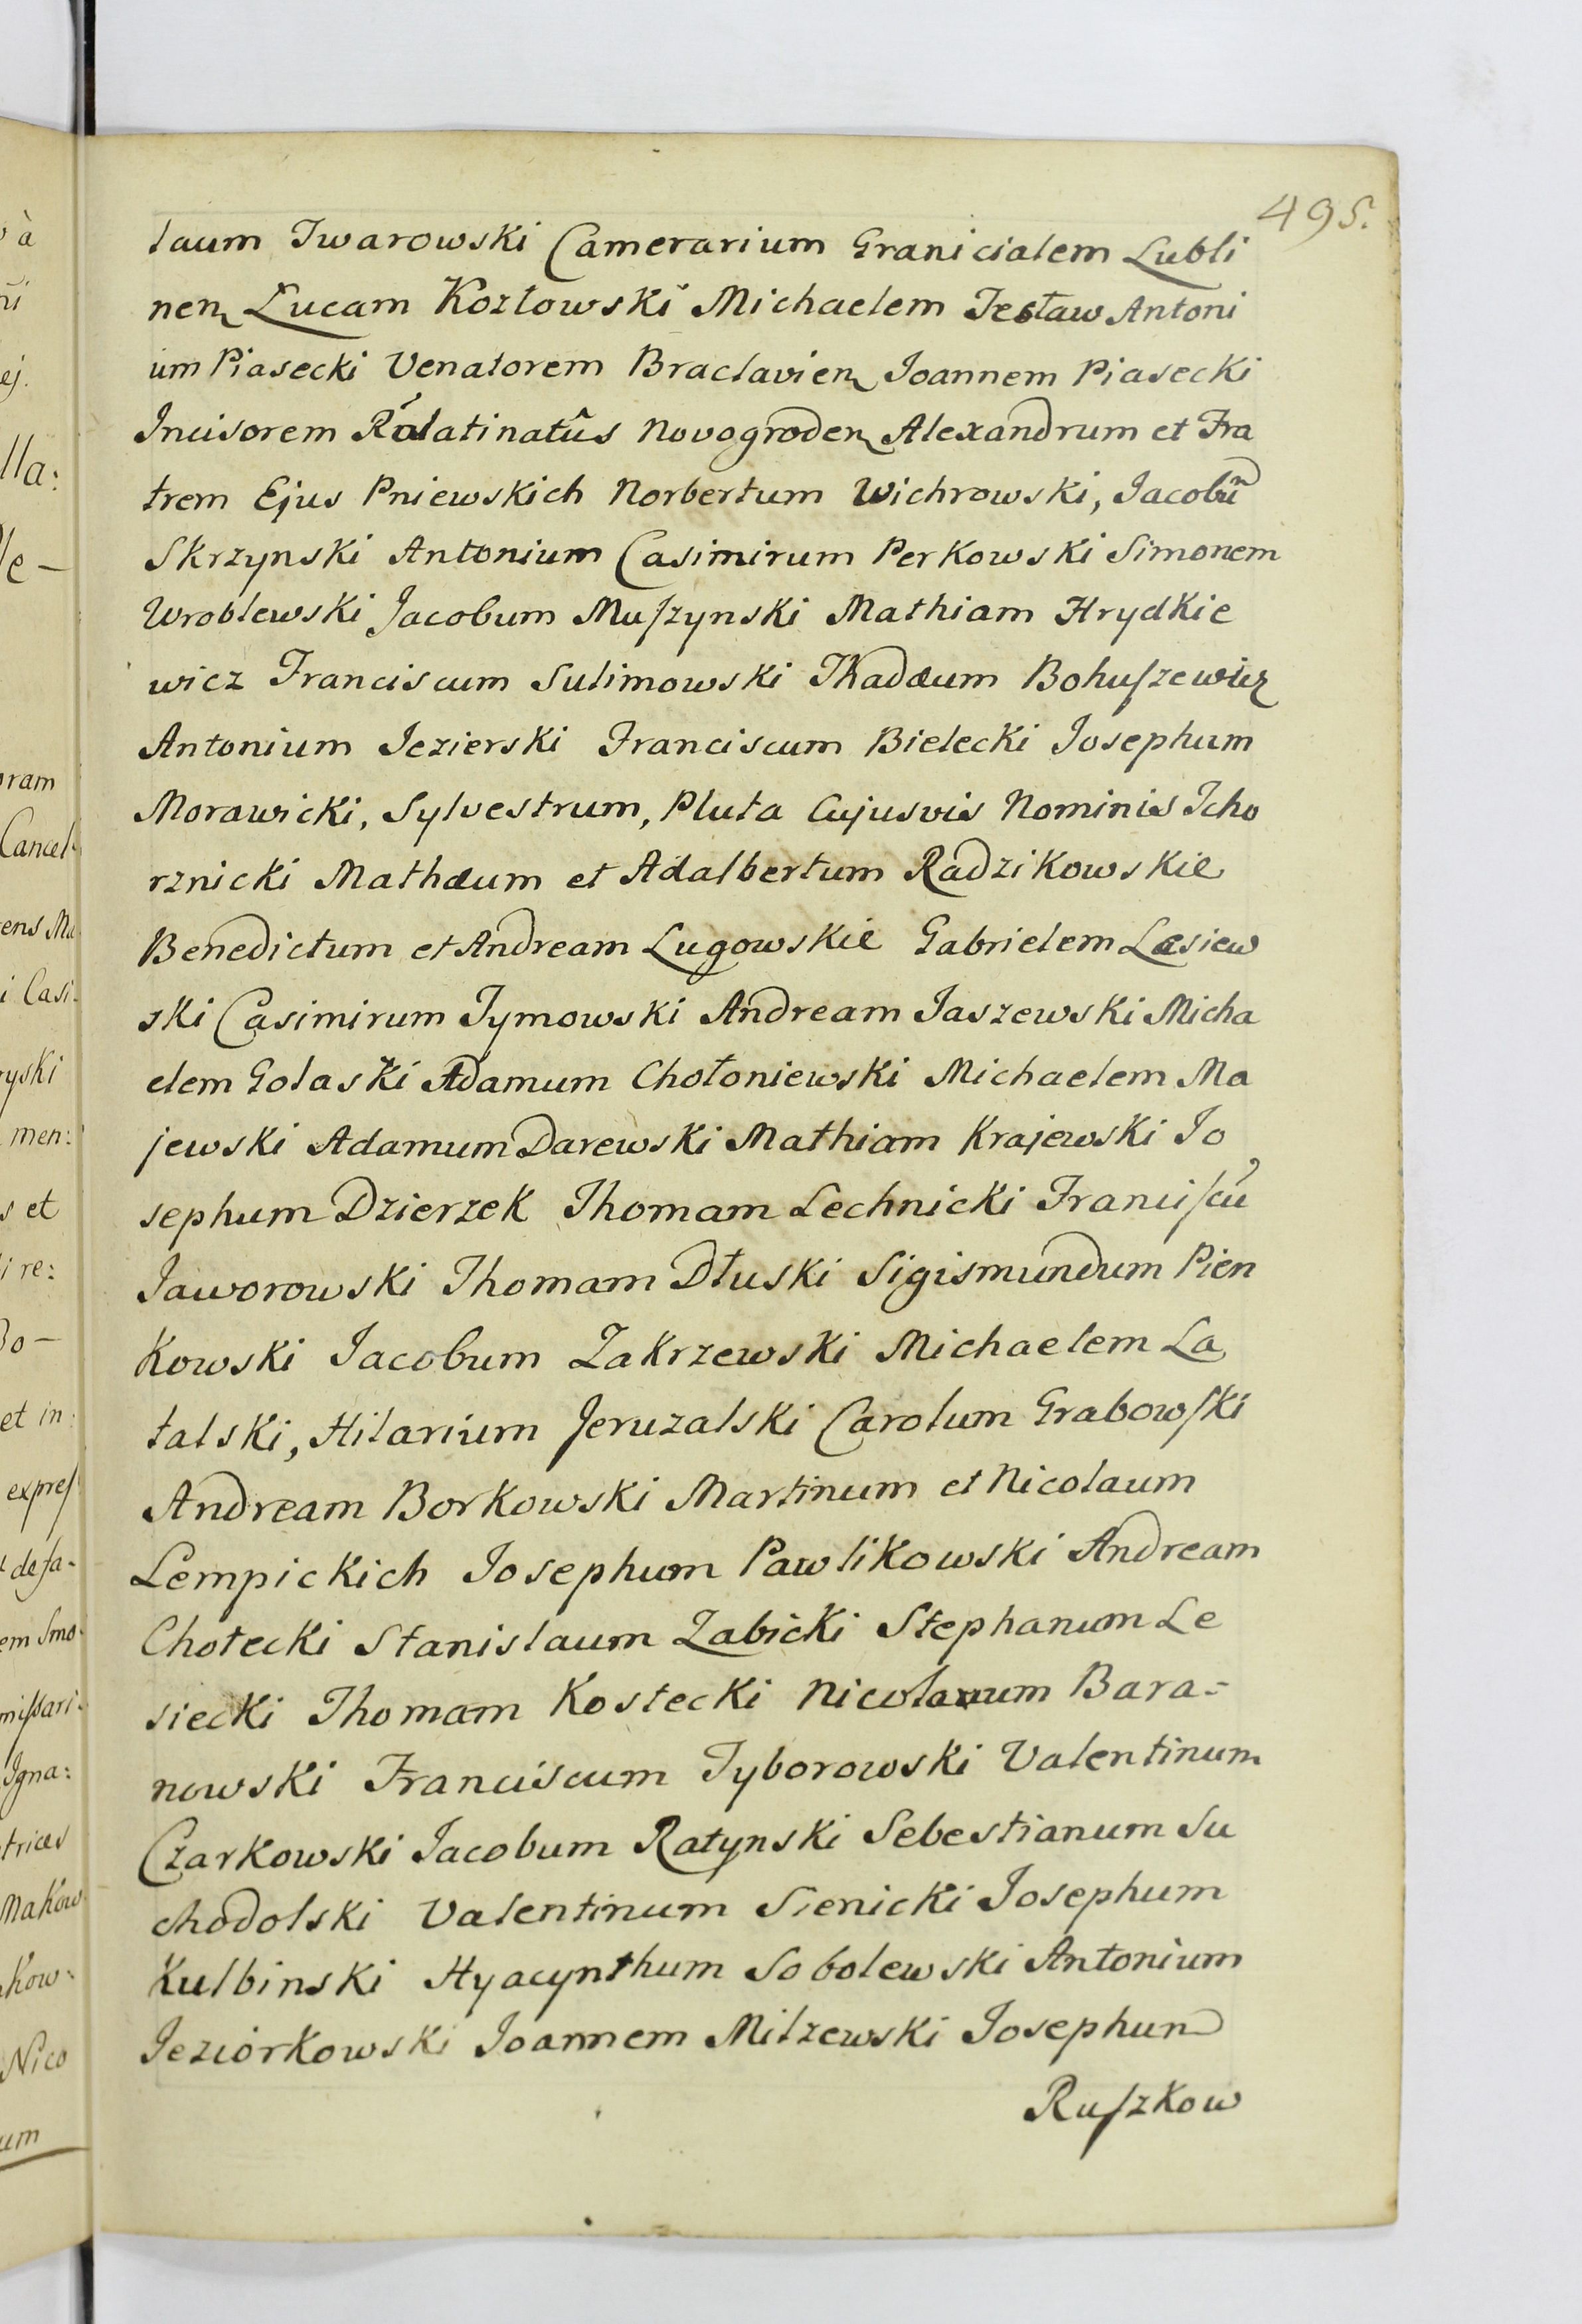 495.
laum Twarowski Camerarium Granicialem Lubli
nen Lucam Kozłowski Michaelem Jesław Antoni
um Piasecki Venatorem Braclavien Joannem Piasecki
Incisorem Palatinatûs Novogroden Alexandrum et Fra
trem Ejus Pniewskich Norbertum Wichrowski, Jacobū
Skrzynski Antonium Casimirum Perkowski Simonem
Wroblewski Jacobum Muſzynski Mathiam Hrydkie
wicz Franciscum Sulimowski Thadæum Bohuſzewicz
Antonium Jezierski Franciscum Bielecki Josephum
Morawicki, Sylvestrum, Pluta Cujusvis Nominis Icho
rznicki Mathæum et Adalbertum Radzikowskie
Benedictum et Andream Lugowskie Gabrielem Læsiew
ski Casimirum Tymowski Andream Jaszewski Micha
elem Golaski Adamum Chołoniewski Michaelem Ma
jewski Adamum Darewski Mathiam Krajewski Jo
sephum Dzierzek Thomam Lechnicki Franciſcū
Jaworowski Thomam Dłuski Sigismundum Pien
kowski Jacobum Zakrzewski Michaelem La
talski, Hilarium Jeruzalski Carolum Grabowſki
Andream Borkowski Martinum et Nicolaum
Lempickich Josephum Pawlikowski Andream
Chotecki Stanislaum Zabicki Stephanum Le
siecki Thomam Kostecki Nicolaum Bara=
nowski Franciscum Tyborowski Valentinum
Czarkowski Jacobum Ratynski Sebestianum Su
chodolski Valentinum Sienicki Josephum
Kulbinski Hyacynthum Sobolewski Antonium
Jeziorkowski Joannem Milzewski Josephum
Ruſzkow